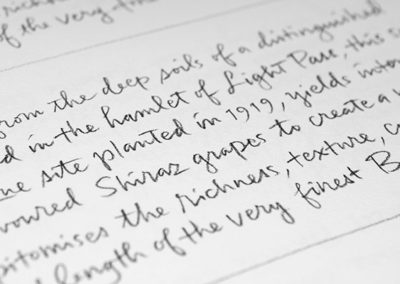 of the very
from the deep soils of a distinguished
d in the hamlet of Light Pass, this s
ne site planted in 1919, yields inten
voured Shiraz grapes to create a
pitomises the richness, texture, c
length of the very finest B